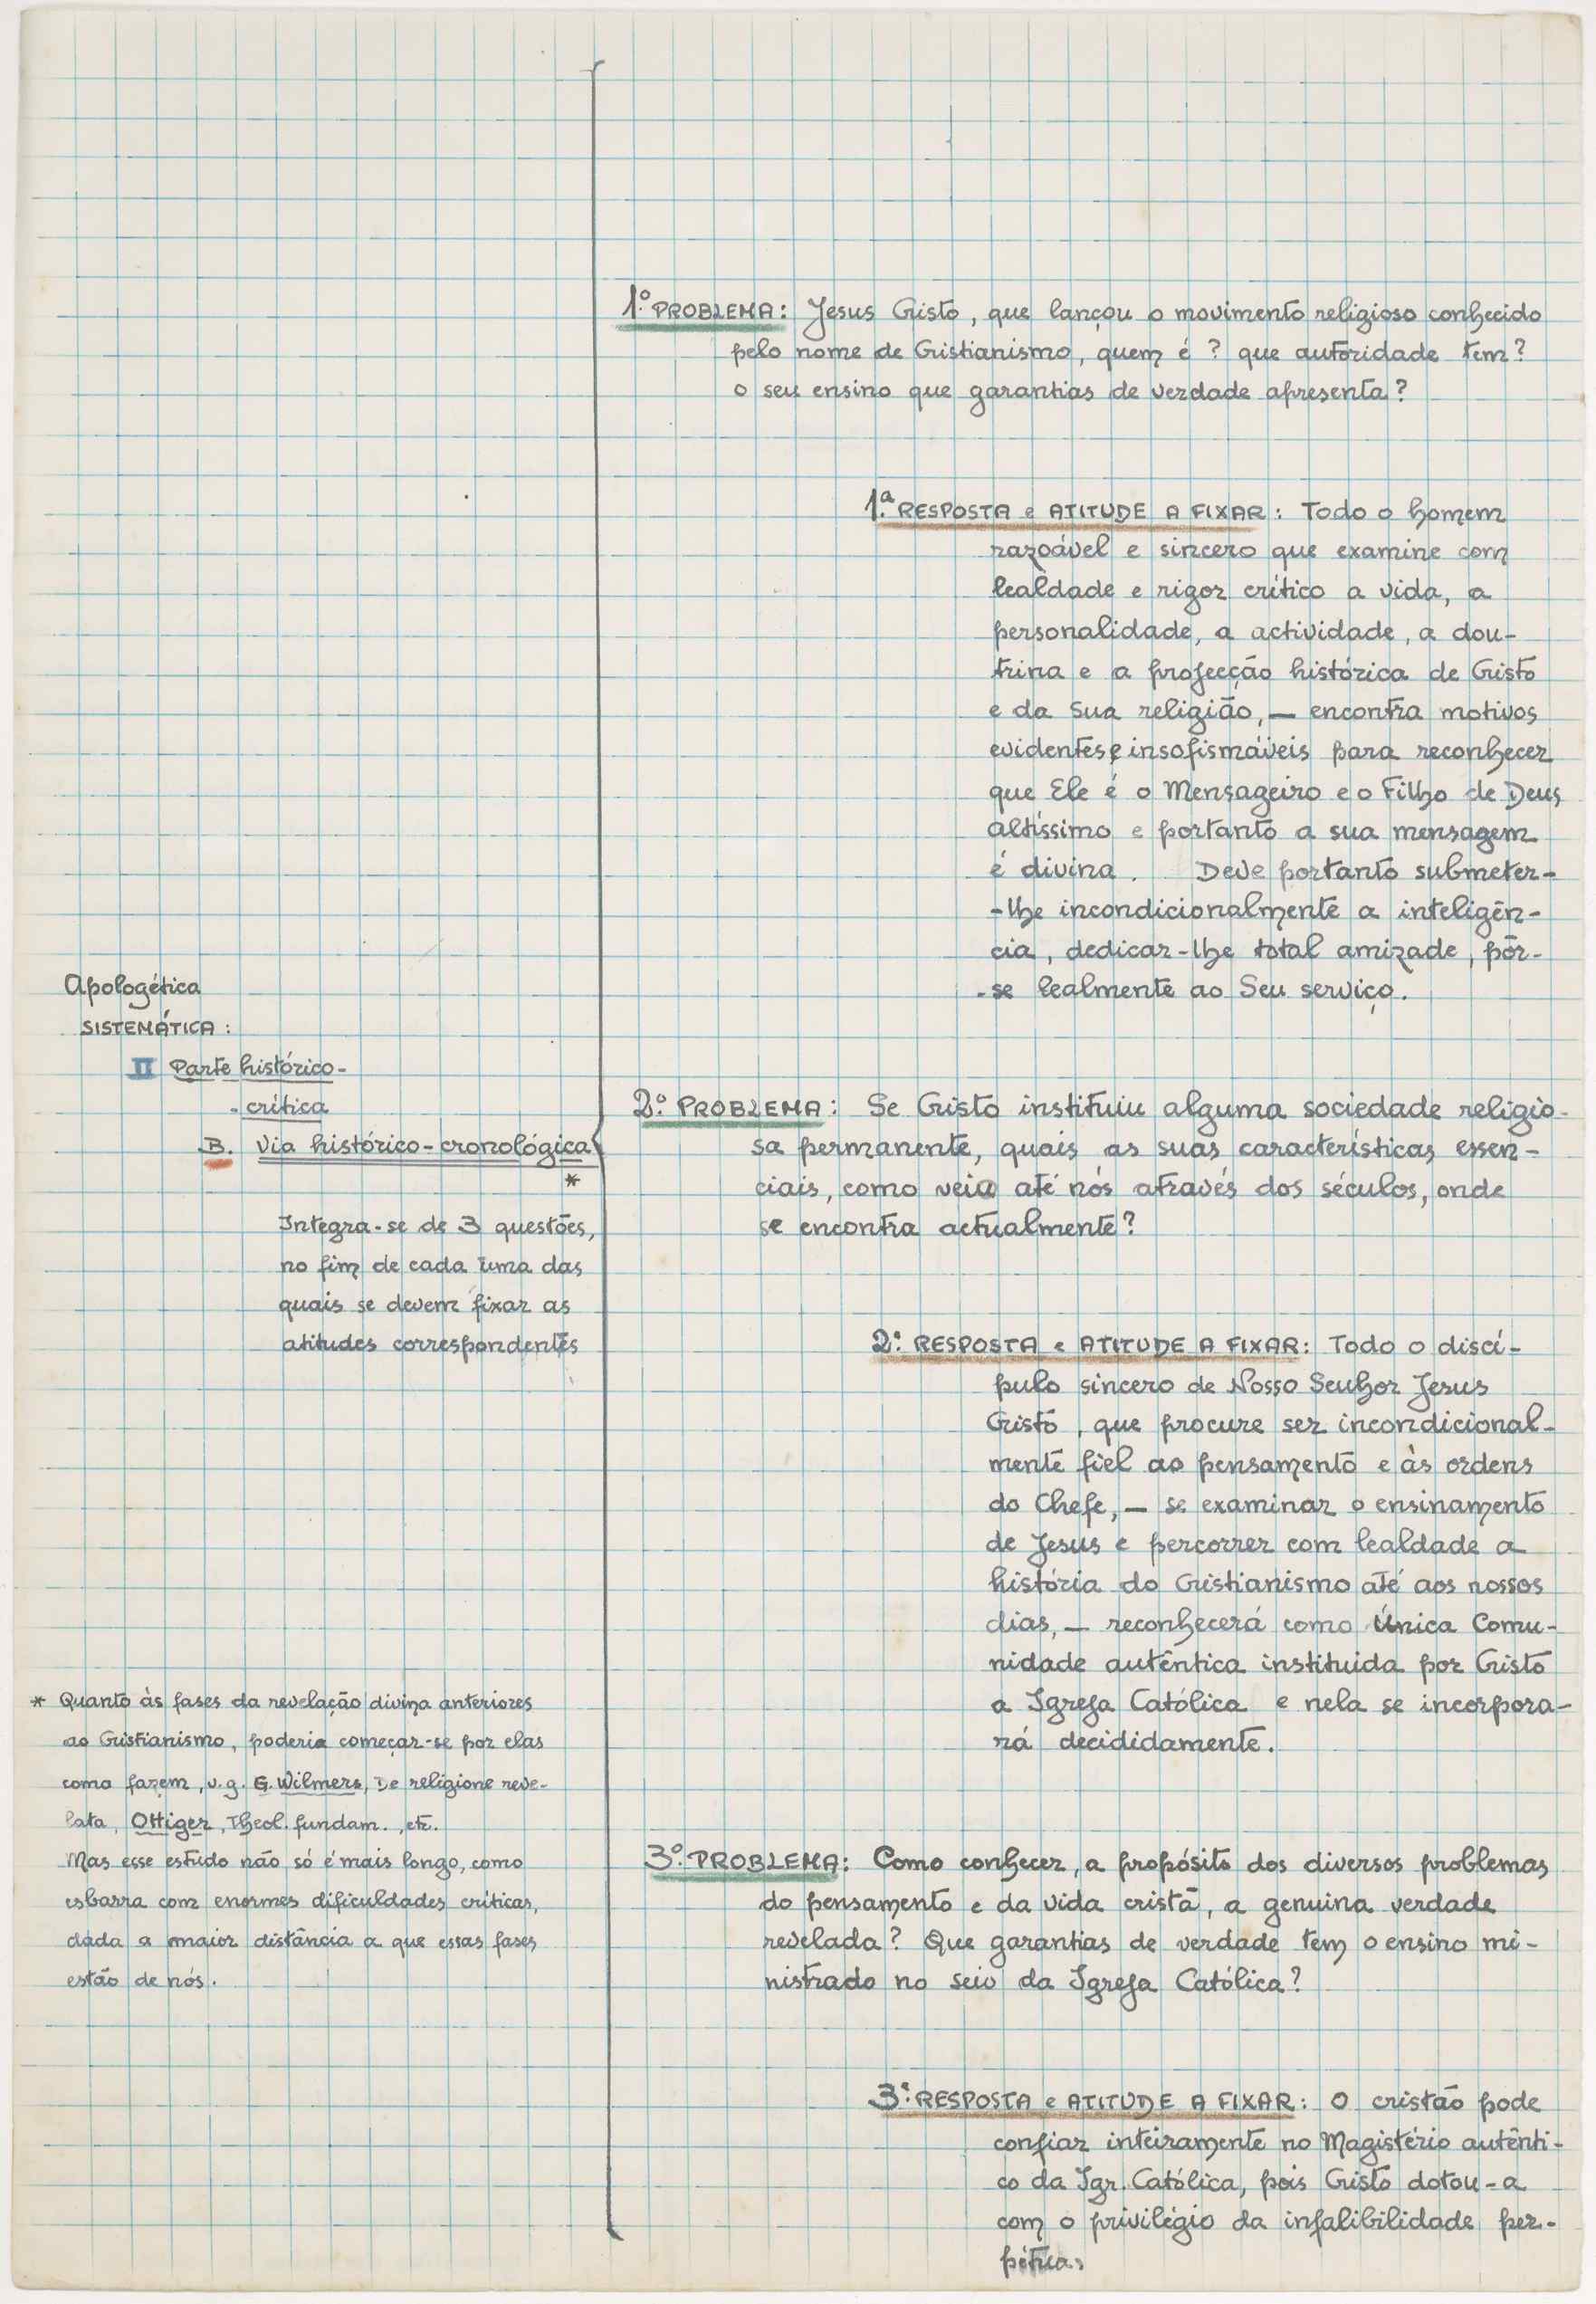 Apologética
SISTEMÁTICA :
II Parte histórico-
-crítica
B. Via histórico-cronológica
*
Integra-se de 3 questões,
no fim de cada uma das
quais se devem fixar as
atitudes correspondentes
* Quanto às fases da revelação divina anteriores
ao Cristianismo, poderia começar-se por elas
como fazem, v.g. G. Wilmers, De religione reve-
lata, Ottiger, Theol. fundam., etc.
Mas esse estudo não só é mais longo, como
esbarra com enormes dificuldades críticas,
dada a maior distância a que essas fases
estão de nós.
1.º PROBLEMA: Jesus Cristo, que lançou o movimento religioso conhecido
pelo nome de Cristianismo, quem é? que autoridade tem?
o seu ensino que garantias de verdade apresenta?
1.ª RESPOSTA e ATITUDE A FIXAR: Todo o homem
razoável e sincero que examine com
lealdade e rigor crítico a vida, a
personalidade, a actividade, a dou-
trina e a projecção histórica de Cristo
e da sua religião, — encontra motivos
evidentes e insofismáveis para reconhecer
que Ele é o Mensageiro e o Filho de Deus
altíssimo e portanto a sua mensagem
é divina. Deve portanto submeter-
-lhe incondicionalmente a inteligên-
cia, dedicar-lhe total amizade, pôr-
-se lealmente ao Seu serviço.
2.º PROBLEMA: Se Cristo instituiu alguma sociedade religio-
sa permanente, quais as suas características essen-
ciais, como veio até nós através dos séculos, onde
se encontra actualmente?
2.ª RESPOSTA e ATITUDE A FIXAR: Todo o discí-
pulo sincero de Nosso Senhor Jesus
Cristo, que procure ser incondicional-
mente fiel ao pensamento e às ordens
do Chefe, — se examinar o ensinamento
de Jesus e percorrer com lealdade a
história do Cristianismo até aos nossos
dias, — reconhecerá como Única Comu-
nidade autêntica instituida por Cristo
a Igreja Católica e nela se incorpora-
rá decididamente.
3.º PROBLEMA: Como conhecer, a propósito dos diversos problemas
do pensamento e da vida cristã, a genuina verdade
revelada? Que garantias de verdade tem o ensino mi-
nistrado no seio da Igreja Católica?
3.ª RESPOSTA e ATITUDE A FIXAR: O cristão pode
confiar inteiramente no Magistério autênti-
co da Igr. Católica, pois Cristo dotou-a
com o privilégio da infalibilidade per-
pétua.